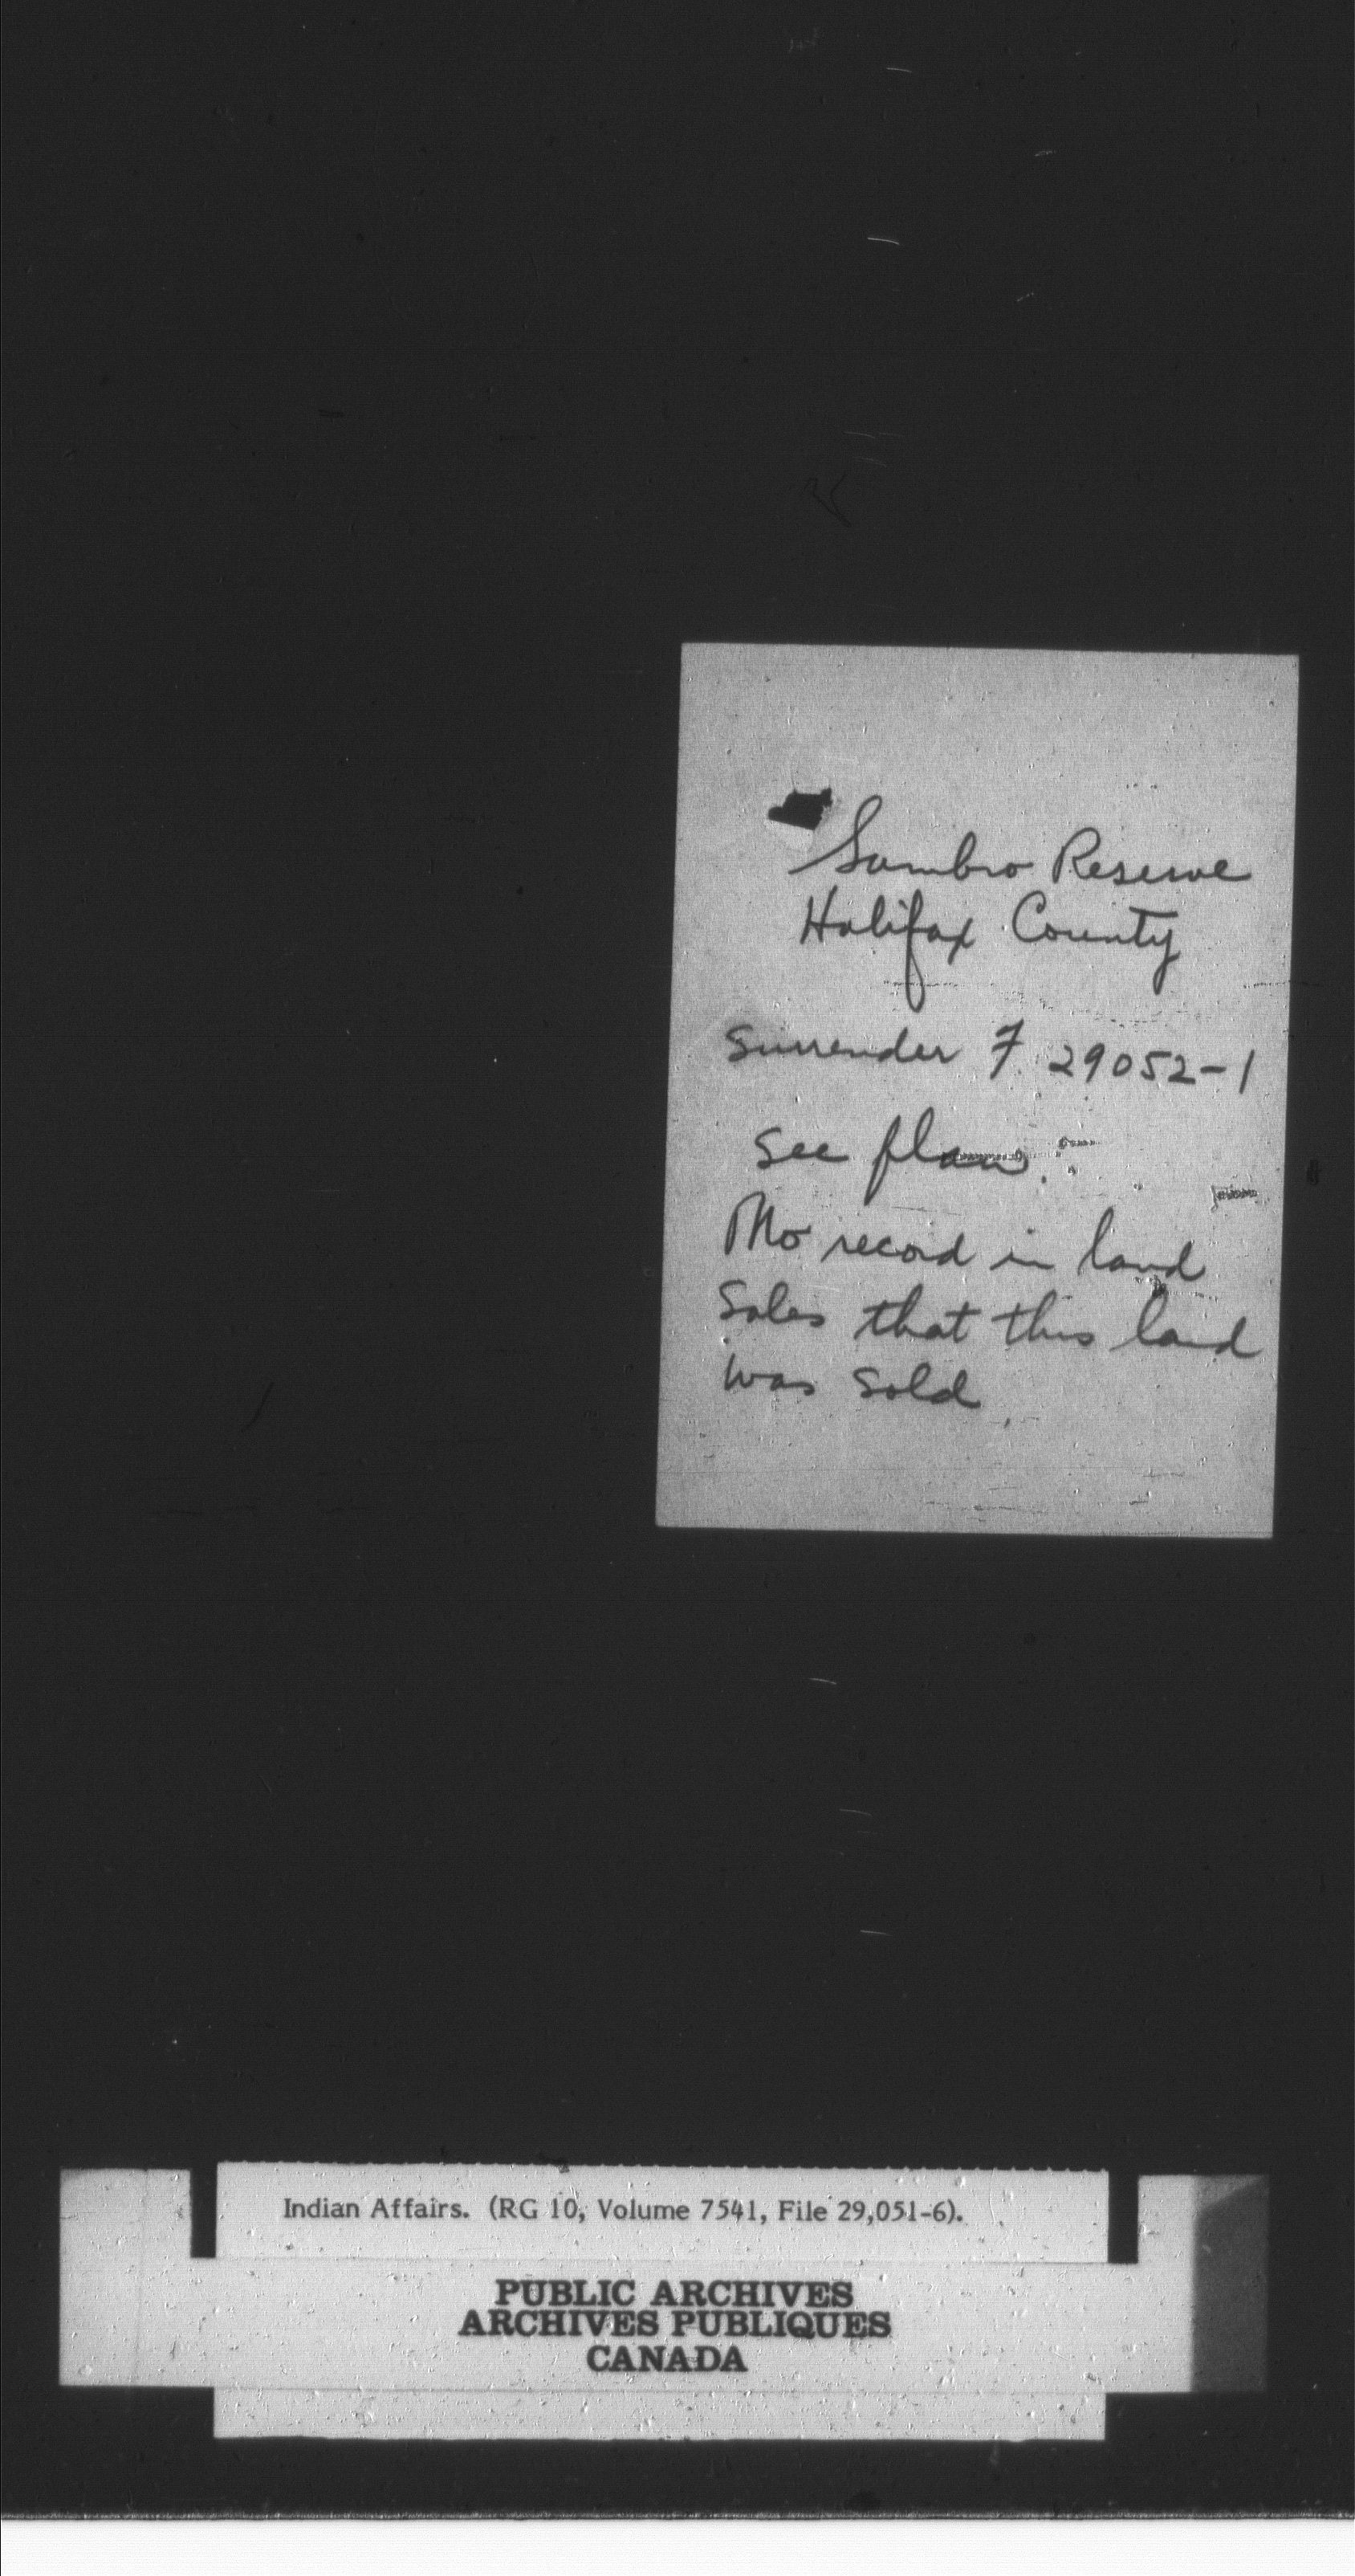 Sambro Reserve
Halifax County
Surrender F. 29052-1
see plan.
No record in land
sales that this land
was sold.
Indian Affairs. (RG 10, Volume 7541, File 29,051-6).
PUBLIC ARCHIVES
ARCHIVES PUBLIQUES
CANADA